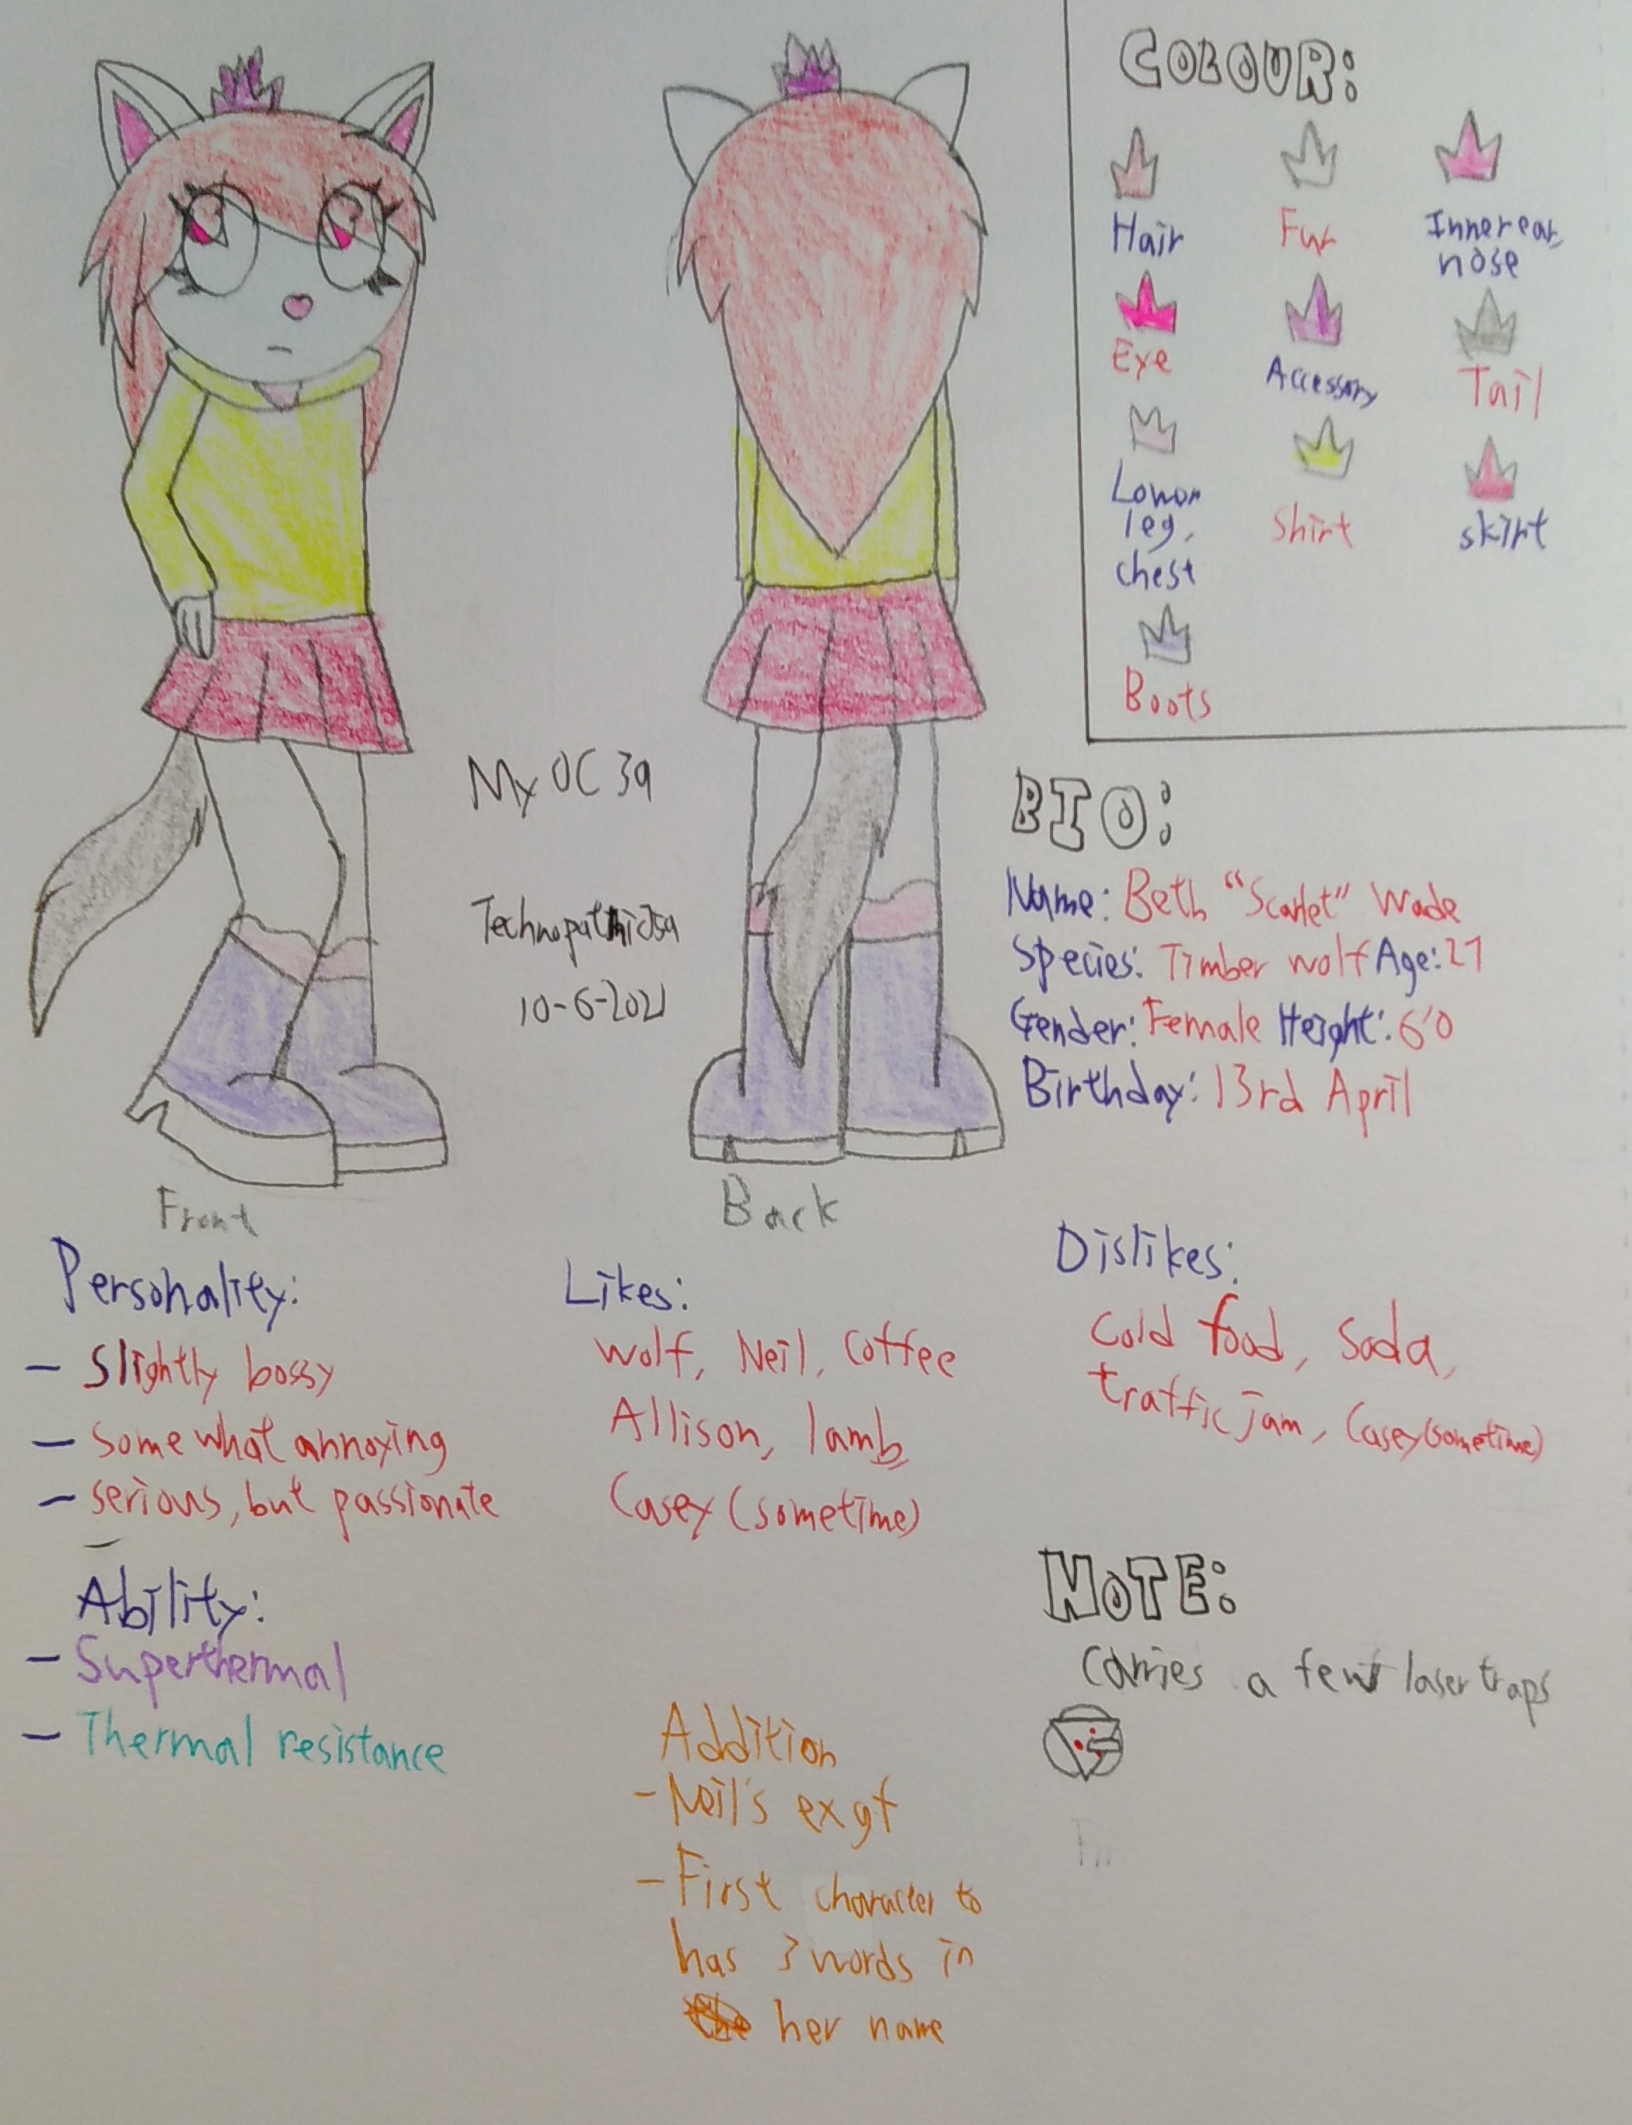 COLOUR:
Hair
Fur
Inner ear,
nose
Eye
Accessory
Tail
Lower
leg,
chest
Shirt
skirt
Boots
My OC 39
10-6-2021
BIO:
Name: Beth "Scarlet" Wade
Species: Timber wolf Age: 27
Gender: Female Height: 6'0
Birthday: 13rd April
Front
Back
Personality:
- Slightly bossy
- Somewhat annoying
- serious, but passionate
-
Likes:
wolf, Neil, Coffee
Allison, lamb,
Casey (sometime)
Dislikes:
Cold food, Soda,
traffic jam, Casey(sometime)
Ability:
- Superthermal
- Thermal resistance
NOTE:
Carries a few laser traps
Addition
- Neil's ex gf
- First character to
has 3 words in
her name